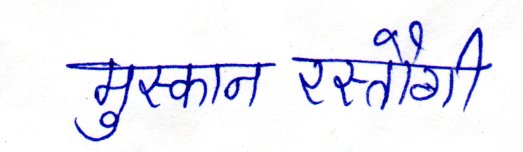 मुस्कान रस्तौगी